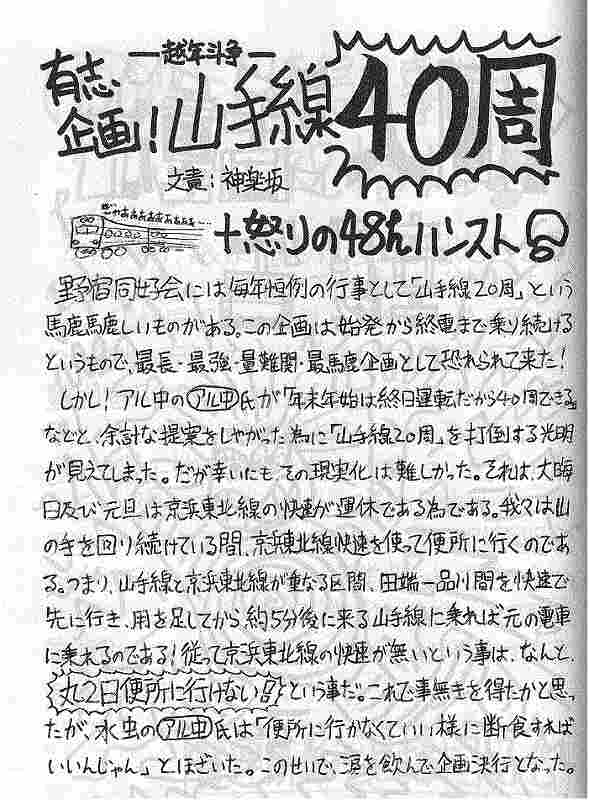 ―越年斗争―
有志
企画!山手線40周
文責:神楽坂
ぎゃあぁぁぁぁぁぁぁ…
+怒りの48hハンスト
野宿同好会には毎年恒例の行事として「山手線20周」という
馬鹿馬鹿しいものがある。この企画は始発から終電まで乗り続ける
というもので、最長・最強・最難関・最馬鹿企画として恐れられて来た!
しかし!アル中のアル中氏が「年末年始は終日運転だから40周できる」
などと、余計な提案をしやがった為に「山手線20周」を打倒する光明
が見えてしまった。だが幸いにも、その現実化は難しかった。それは、大晦
日及び元旦は京浜東北線の快速が運休である為である。我々は山
の手を回り続けている間、京浜東北線快速を使って便所に行くのであ
る。つまり、山手線と京浜東北線が重なる区間、田端―品川間を快速で
先に行き、用を足してから約5分後に来る山手線に乗れば元の電車
に乗れるのである!従って京浜東北線の快速が無いという事は、なんと、
丸2日便所に行けない!!という事だ。これで事無きを得たかと思っ
たが、水虫のアル中氏は「便所に行かなくていい様に断食すれば
いいんじゃん」とほざいた。このせいで、涙を飲んで企画決行となった。